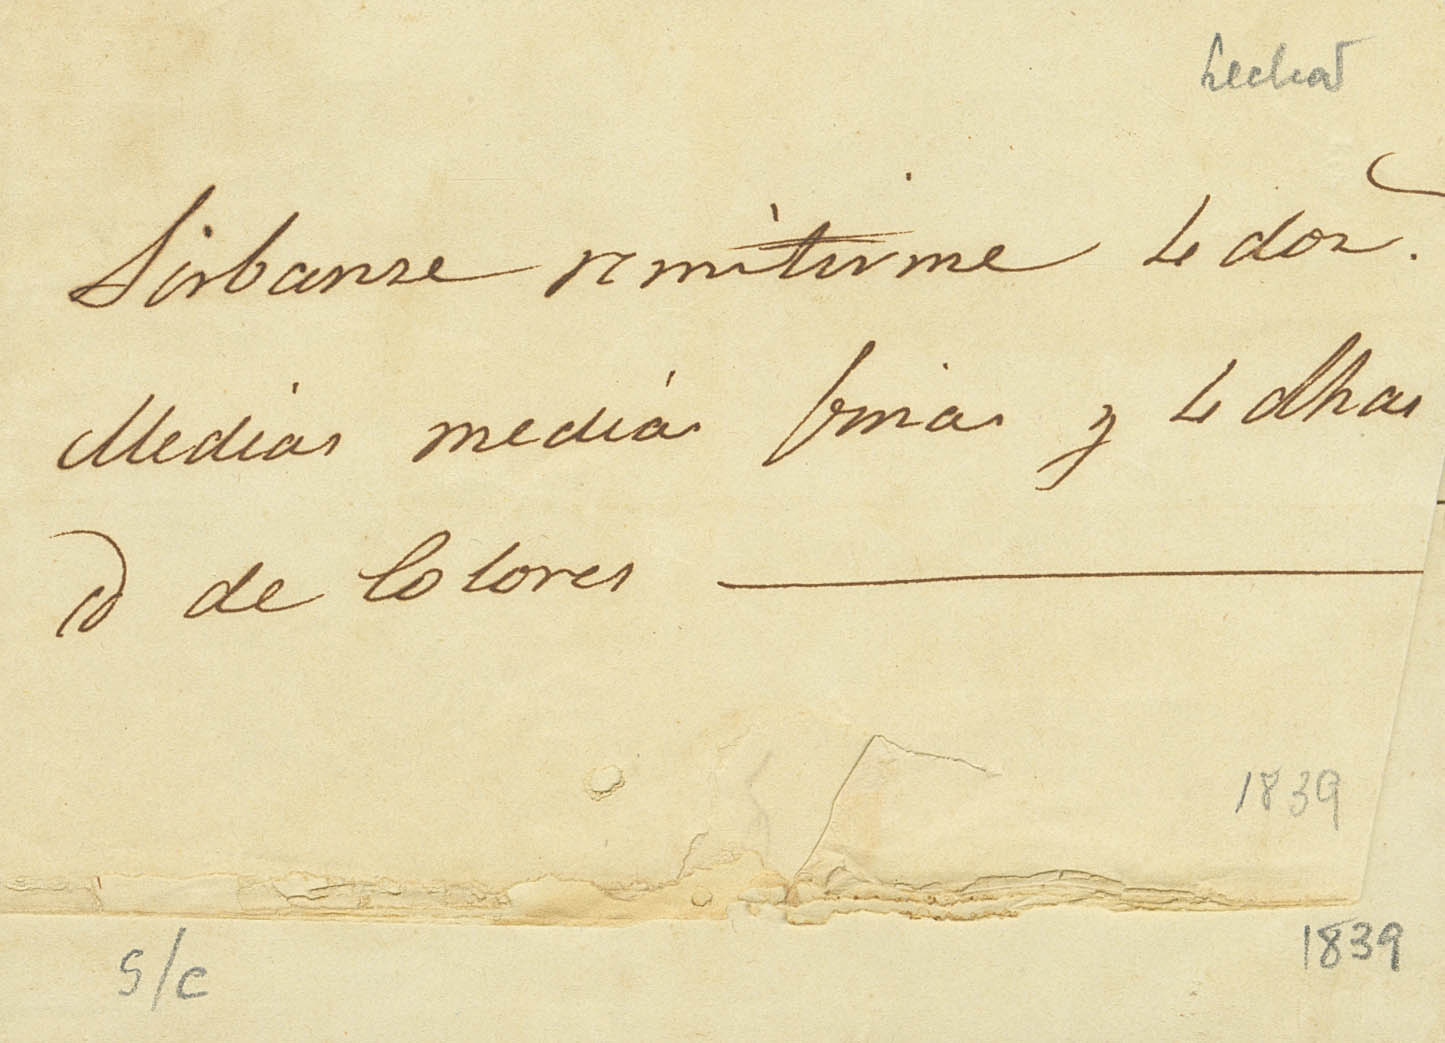 Sirbanse remitirme 4 doz.
Medias medias finas y 4 dhas
de Colores
1839
S/c
1839